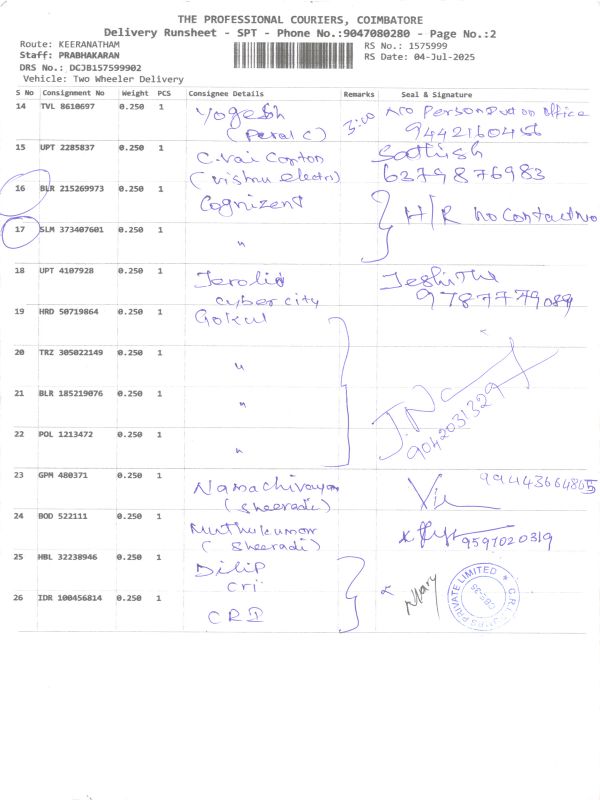 THE PROFESSIONAL COURIERS, COIMBATORE
Delivery Runsheet - SPT - Phone No.:9047080280 - Page No.:2
Route: KEERANATHAM
RS No.: 1575999
Staff: PRABHAKARAN
RS Date: 04-Jul-2025
DRS No.: DCJB157599902
Vehicle: Two Wheeler Delivery
S No Consignment No Weight PCS Consignee Details Remarks Seal & Signature
14 TVL 8610697 0.250 1 Yogesh 3:00 No Person Put on office
(Peral C) 9442160456
15 UPT 2285837 0.250 1 C.Vai Conton Sathish
(Vishnu Electri) 6279876983
16 BLR 215269973 0.250 1 Cognizent H/R no Contact No
17 SLM 373407601 0.250 1 "
18 UPT 4107928 0.250 1 Jerolin
cyber city 9787779089
19 HRD 50719864 0.250 1 Gokul
20 TRZ 305022149 0.250 1 "
21 BLR 185219076 0.250 1 "
22 POL 1213472 0.250 1 "
J.N
9042031329
23 GPM 480371 0.250 1 Namachivayam 99443664805
(Sheeradi)
24 BOD 522111 0.250 1 Muthukumar 9597020319
(Sheeradi)
25 HBL 32238946 0.250 1 Dilip
Cri
26 IDR 100456814 0.250 1 CRI
Mary
C.R.I. PRIVATE LIMITED